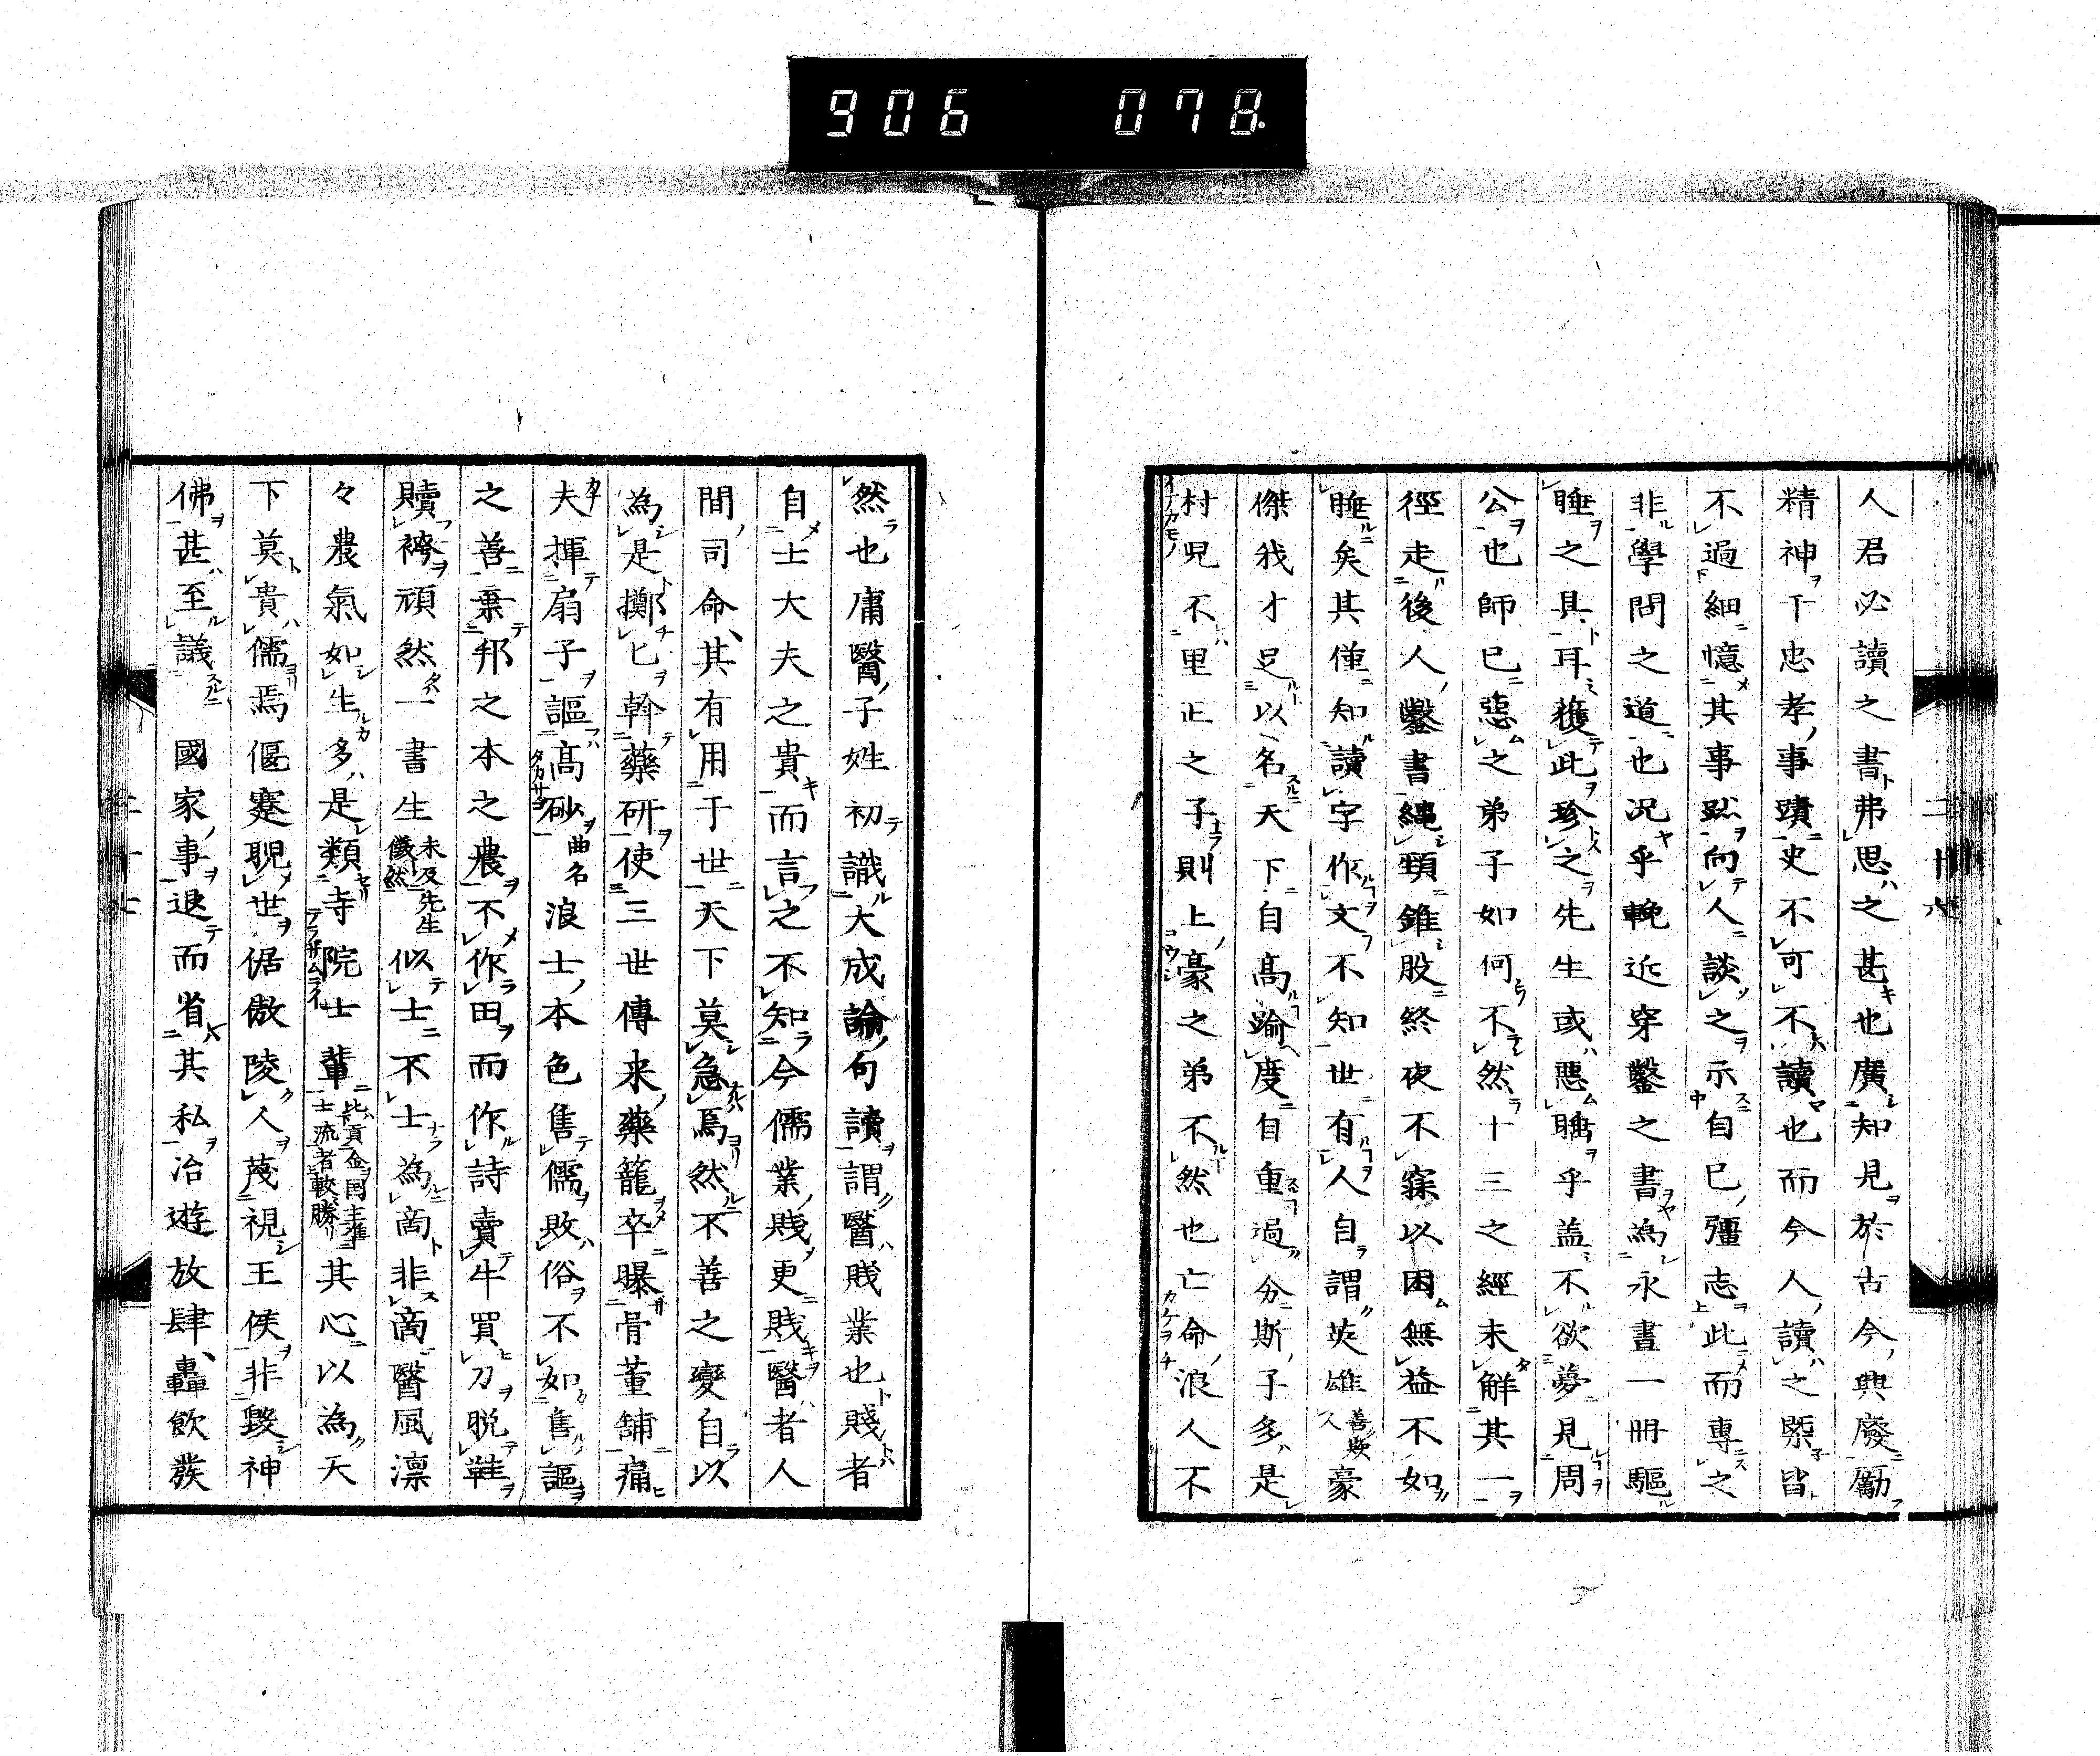 906 078
人君必讀之書弗思之甚也廣知見於古今興廢勵
精神于忠孝事蹟史不可不讀也而今人讀之槩皆
不過細憶其事跡向人談之示自己彊志此而專之
非學問之道也況乎輓近穿鑿之書為永晝一冊驅
睡之具耳獲此珍之先生或惡聃乎蓋不欲夢見周
公也師已惡之弟子如何不然十三之經未解其一
徑走後人鑿書繩頸錐股終夜不寐以困無益不如
睡矣其僅知讀字作文不知世有人自謂英雄善欺人豪
傑我才足以名天下自高踰度自重過分斯子多是
村児不里正之子則上豪之弟不然也亡命浪人不
然也庸醫子姓初識大成論句讀謂醫賎業也賤者
自士大夫之貴而言之不知今儒業賎更賎醫者人
間司命其有用于世天下莫急焉然不善之變自以
為是擲匕幹藥研使三世傳来藥籠卒曝骨董舗痛
夫揮扇子謳高砂曲名浪士本色售儒敗俗不如售謳
之善棄邦之本之農不作田而作詩賣牛買刀脱鞋
贖袴頑然一書生未及先生儼然似士不士為商非商醫風凛
々農氣如生多是類寺院士輩此貢金国主準士流者較勝其心以為天
下莫貴儒焉偃蹇睨世倨傲陵人蔑視王侯非毀神
佛甚至議 國家事退而省其私冶遊放肆轟飲發